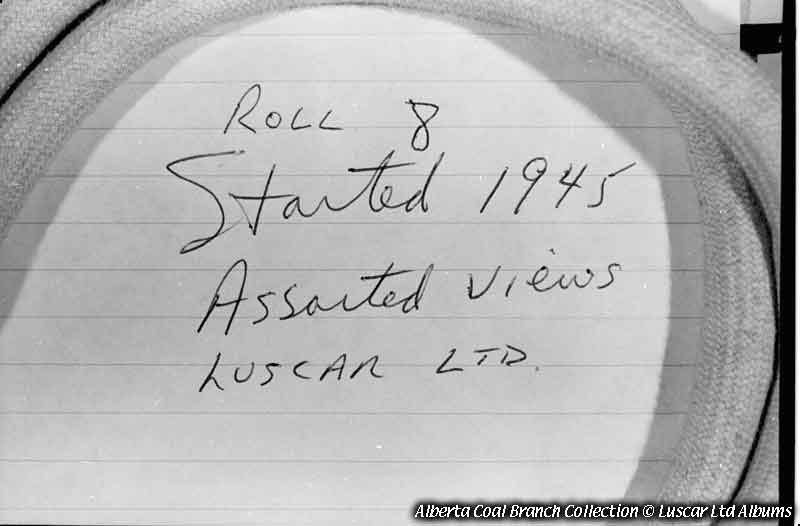 ROLL 8
Started 1945
Assorted views
LUSCAR LTD.
Alberta Coal Branch Collection © Luscar Ltd Albums